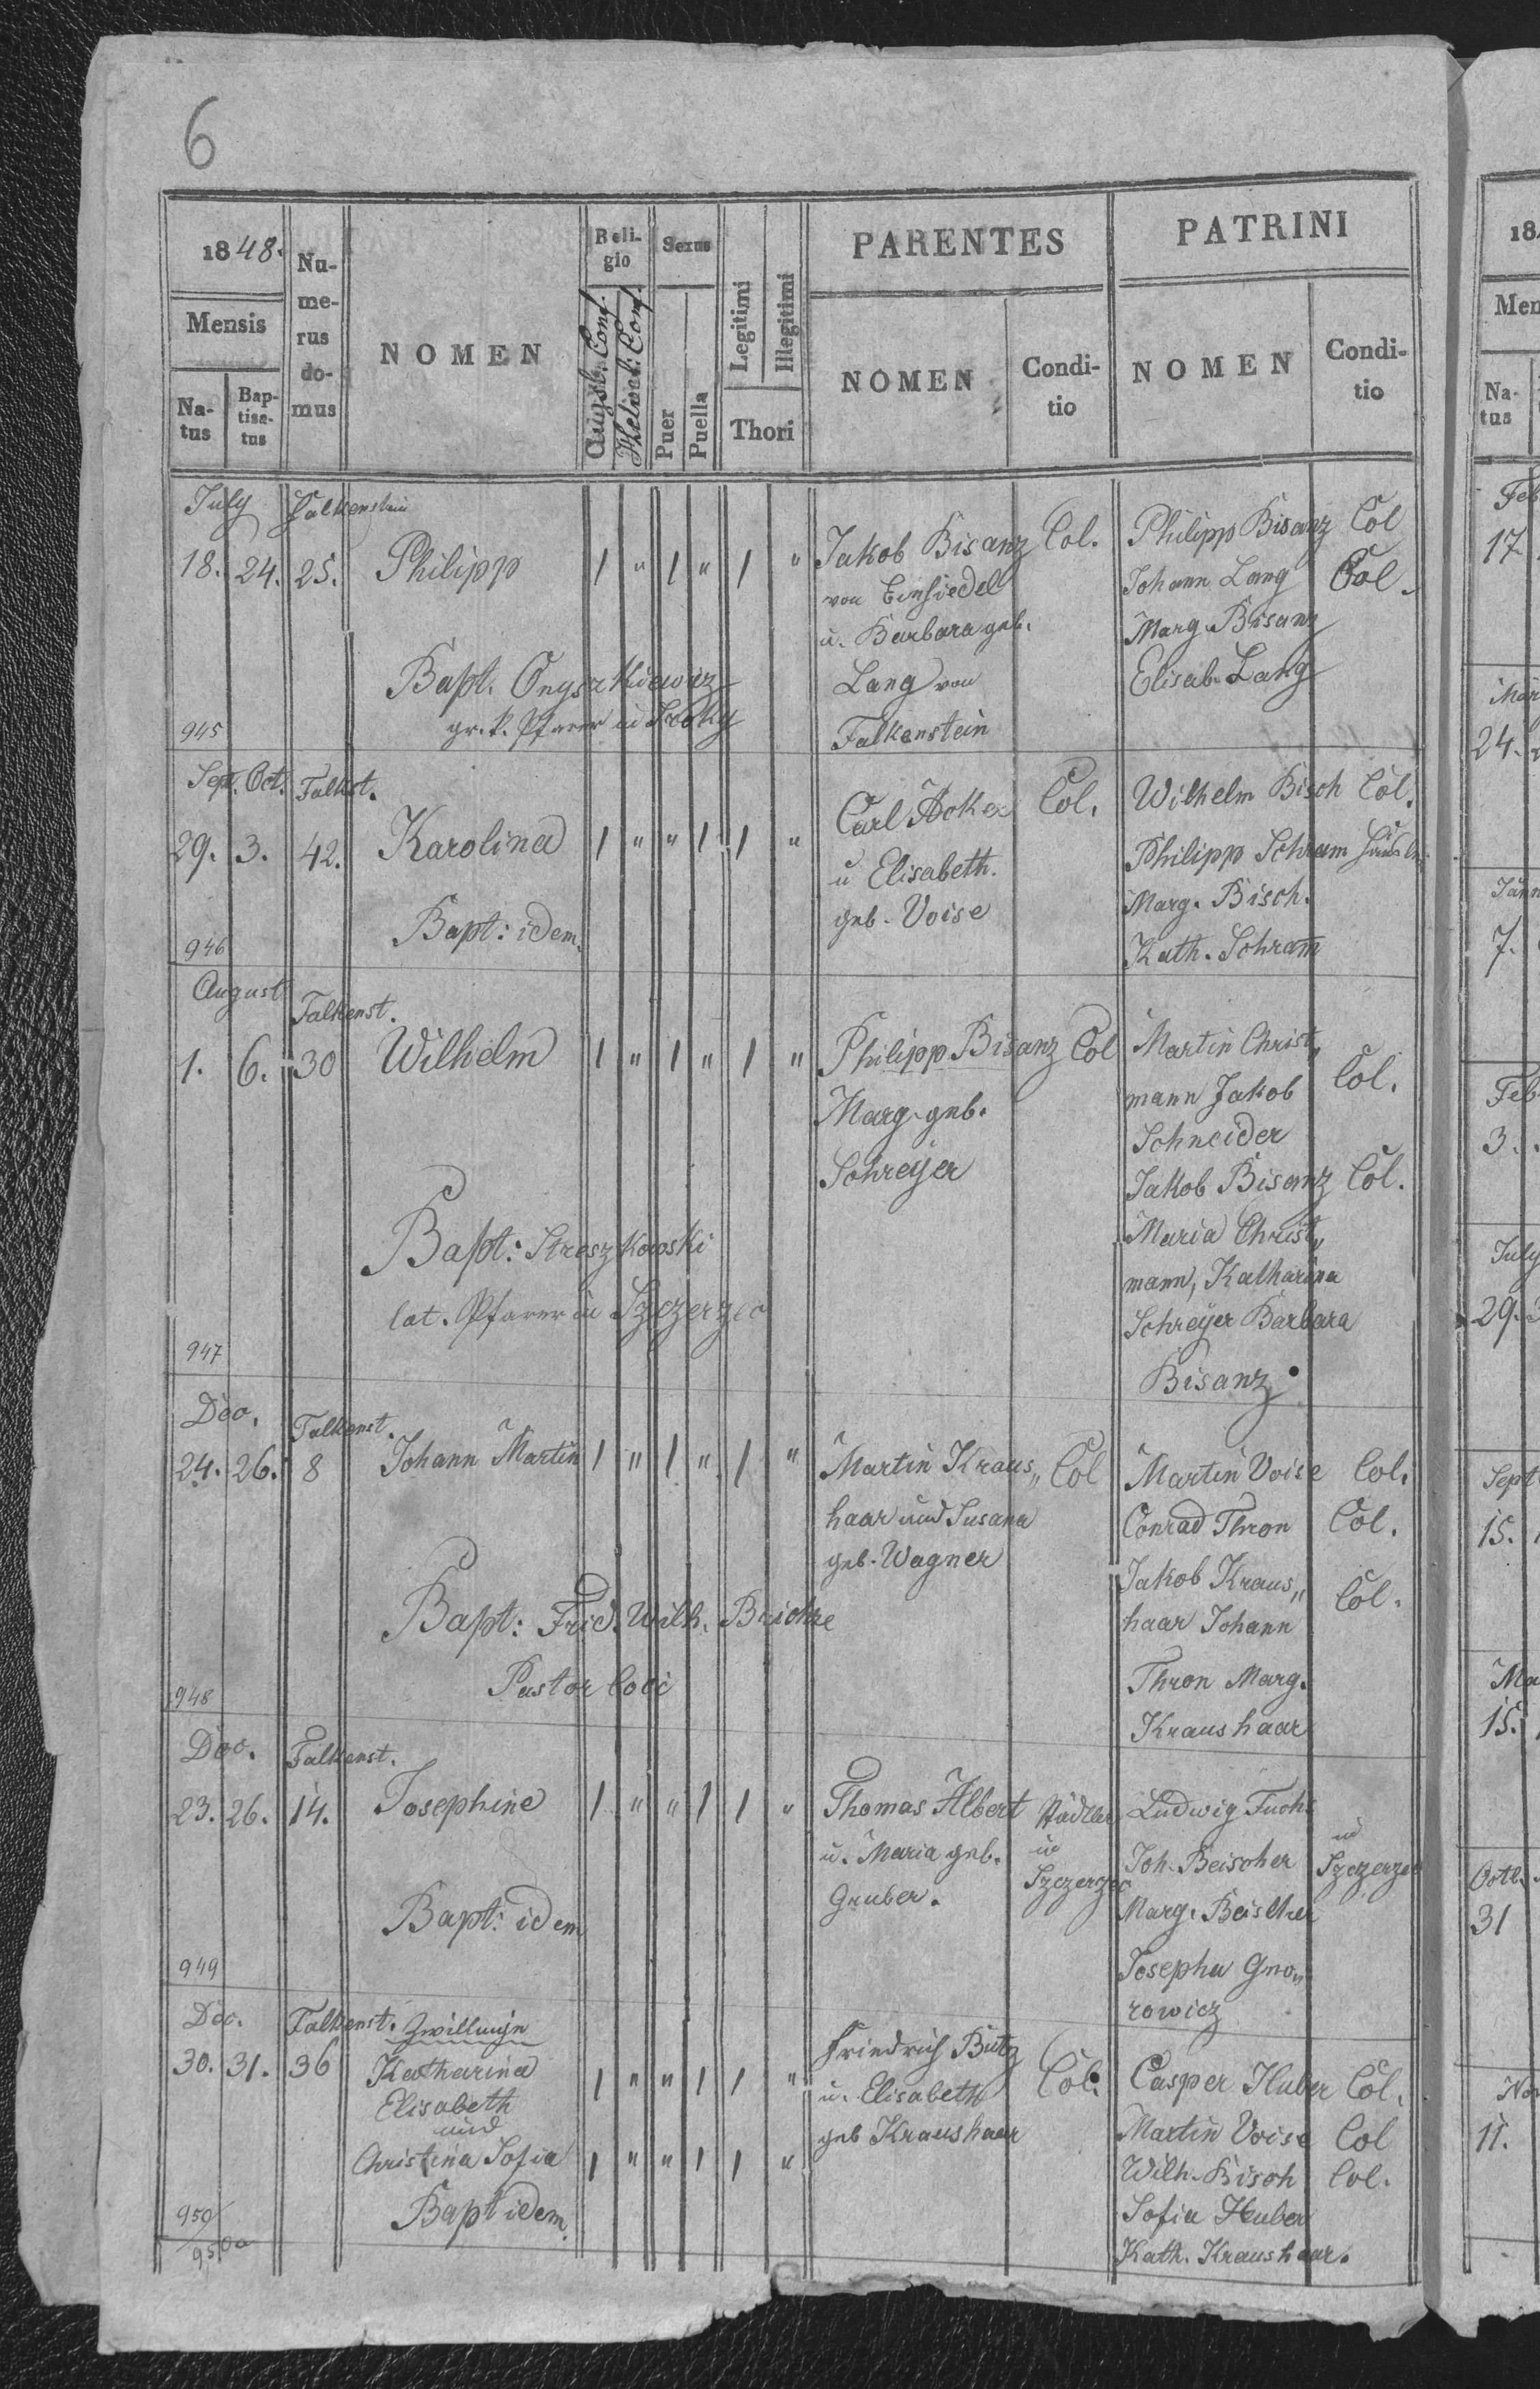 6
1848.
Mensis
Na-
tus
Bap-
tisa-
tus
Nu-
me-
rus
do-
mus
NOMEN
Reli-
gio
Augsb. Conf.
Helvet. Conf.
Sexus
Puer
Puella
Legitimi
Illegitimi
Thori
PARENTES
NOMEN
Condi-
tio
PATRINI
NOMEN
Condi-
tio
July Falkenstein
18. 24. 25. Philipp 1 " 1 " 1 " Jakob Bisanz Col. Philipp Bisanz Col
von Einsiedel Johann Lang Col.
u. Barbara geb. Marg. Bisanz
Bapt. Onyszkiewicz Lang von Elisab. Lang
945 gr. k. Pfarrer in Falkenstein
Sept. Oct. Falkst.
29. 3. 42. Karolina 1 " " 1 1 " Carl Acker Col. Wilhelm Bisch Col.
u Elisabeth. Philipp Schram
geb. Voise Marg. Bisch.
946 Bapt: idem. Kath. Schram
August Falkenst.
1. 6. 30 Wilhelm 1 " 1 " 1 " Philipp Bisanz Col Martin Christ„
Marg. geb. mann Jakob Col.
Schreyer Schneider
Jakob Bisanz Col.
Bapt: Streszkowski Maria Christ„
lat. Pfarrer in Szczerzec mann, Katharina
Schreyer Barbara
947 Bisanz.
Dec. Falkenst.
24. 26. 8 Johann Martin 1 " 1 " 1 " Martin Kraus„ Col Martin Voise Col.
haar und Susana Conrad Thron Col.
geb. Wagner Jakob Kraus„
Bapt: Frid. Wilh. haar Johann Col.
Pastor loci Thron Marg.
948 Kraushaar
Dec. Falkenst.
23. 26. 14. Josephine 1 " " 1 1 " Thomas Albert Ludwig Fuchs
u. Maria geb. in Joh. Beischer in Szczerzec
Gruber. Szczerzec Marg. Beischer
Bapt: idem Josepha Gno„
949 rowicz
Dec. Falkenst. Zwillinge
30. 31. 36 Katharina 1 " " 1 1 " Friedrich Butz Col. Casper Huber Col.
Elisabeth u. Elisabeth Martin Voise Col
und geb Kraushaar
Christina Sofia 1 " " 1 1 " Wilh. Bisch Col.
950/ Bapt idem. Sofia Huber
950a Kath. Kraushaar.
18
Men
Na-
tus
Feb
17
24.
7.
Feb
3.
July
29.
Sept
15.
Ma
15.
31
No
11.